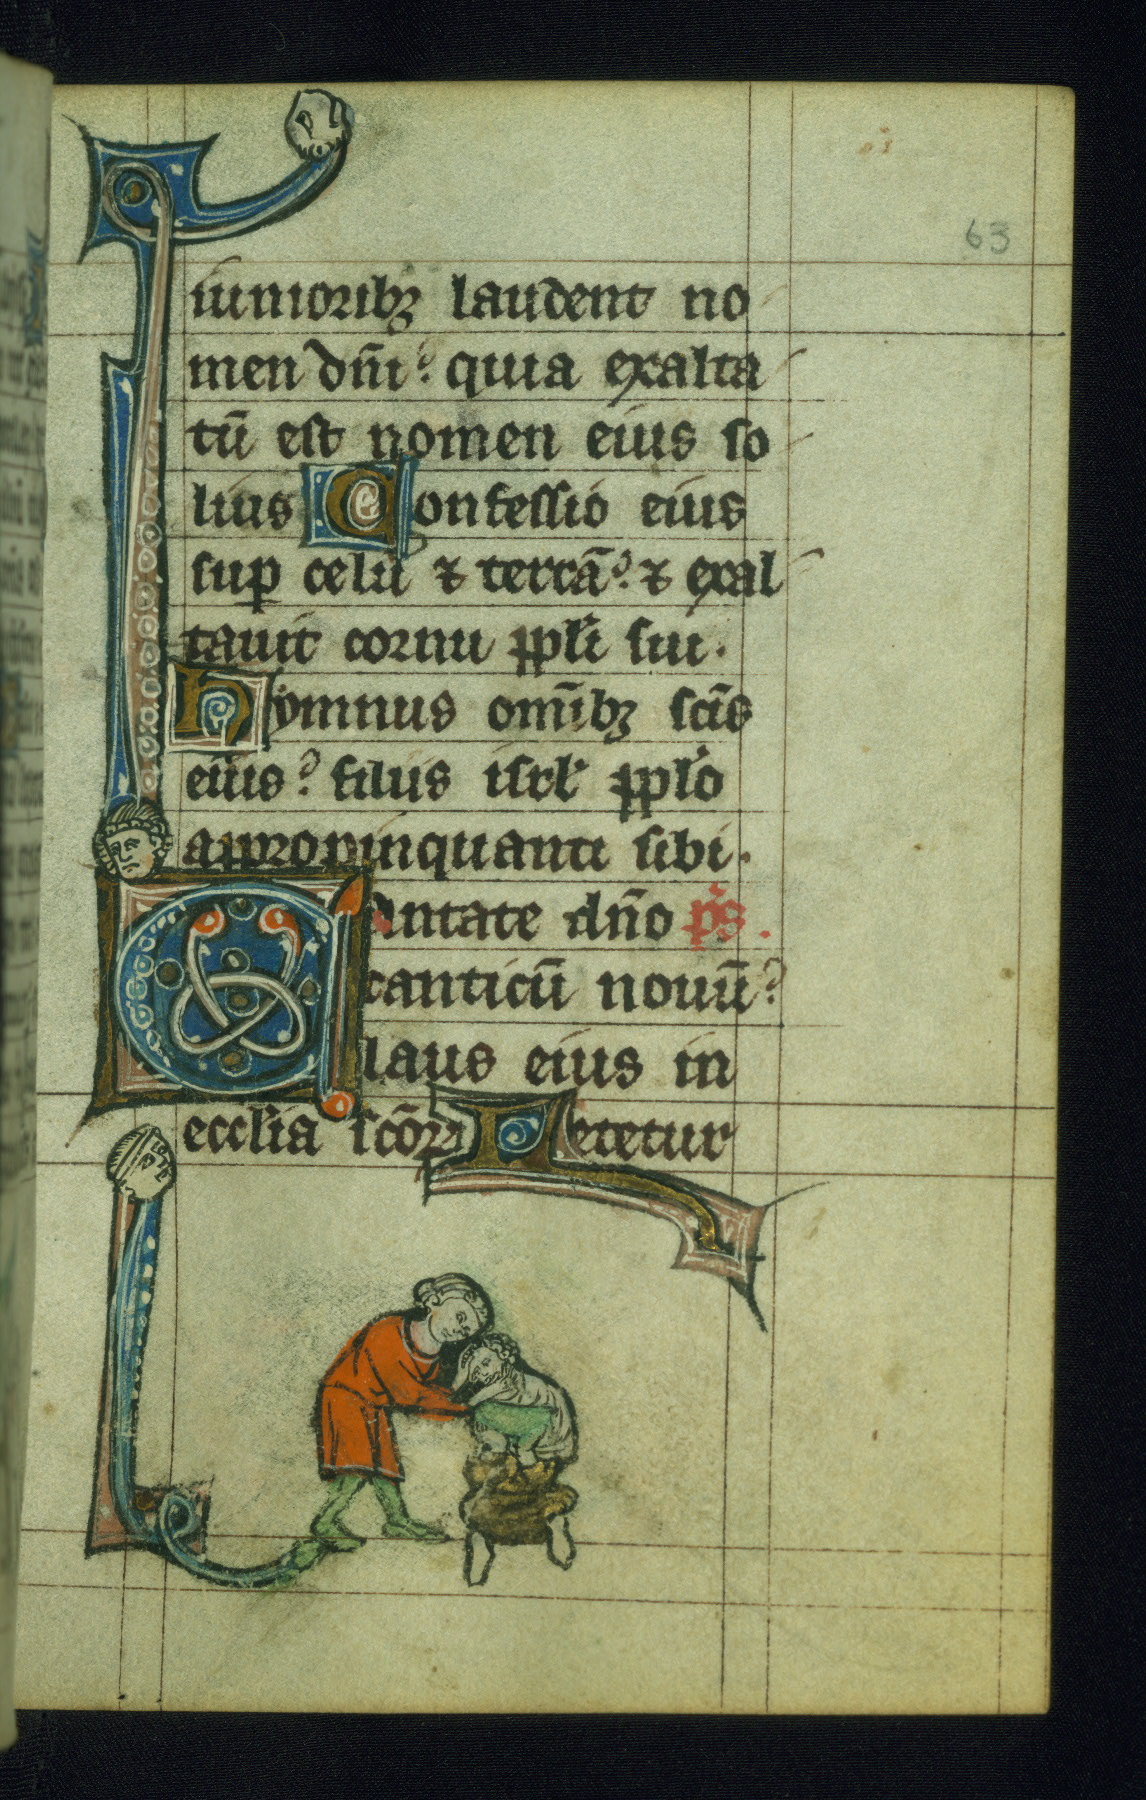 63
iunioribꝫ laudent no
men dn̄i? quia exalta
tū est nomen eius so
lius Confessio eius
suꝑ celū ⁊ terrā? ⁊ exal
tauit cornu ppl̓i sui.
Hymnus om̄ibꝫ sc̄is
eius? filiis isrl̓ ppl̓o
appropinquanti sibi.
Cantate dn̄o ps̓.
canticū nouū?
laus eius in
eccl̓ia sc̄oꝝ Letetur